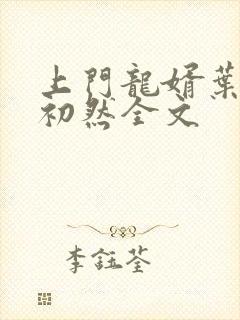 上門龍婿葉
初然全文
李鈺荃